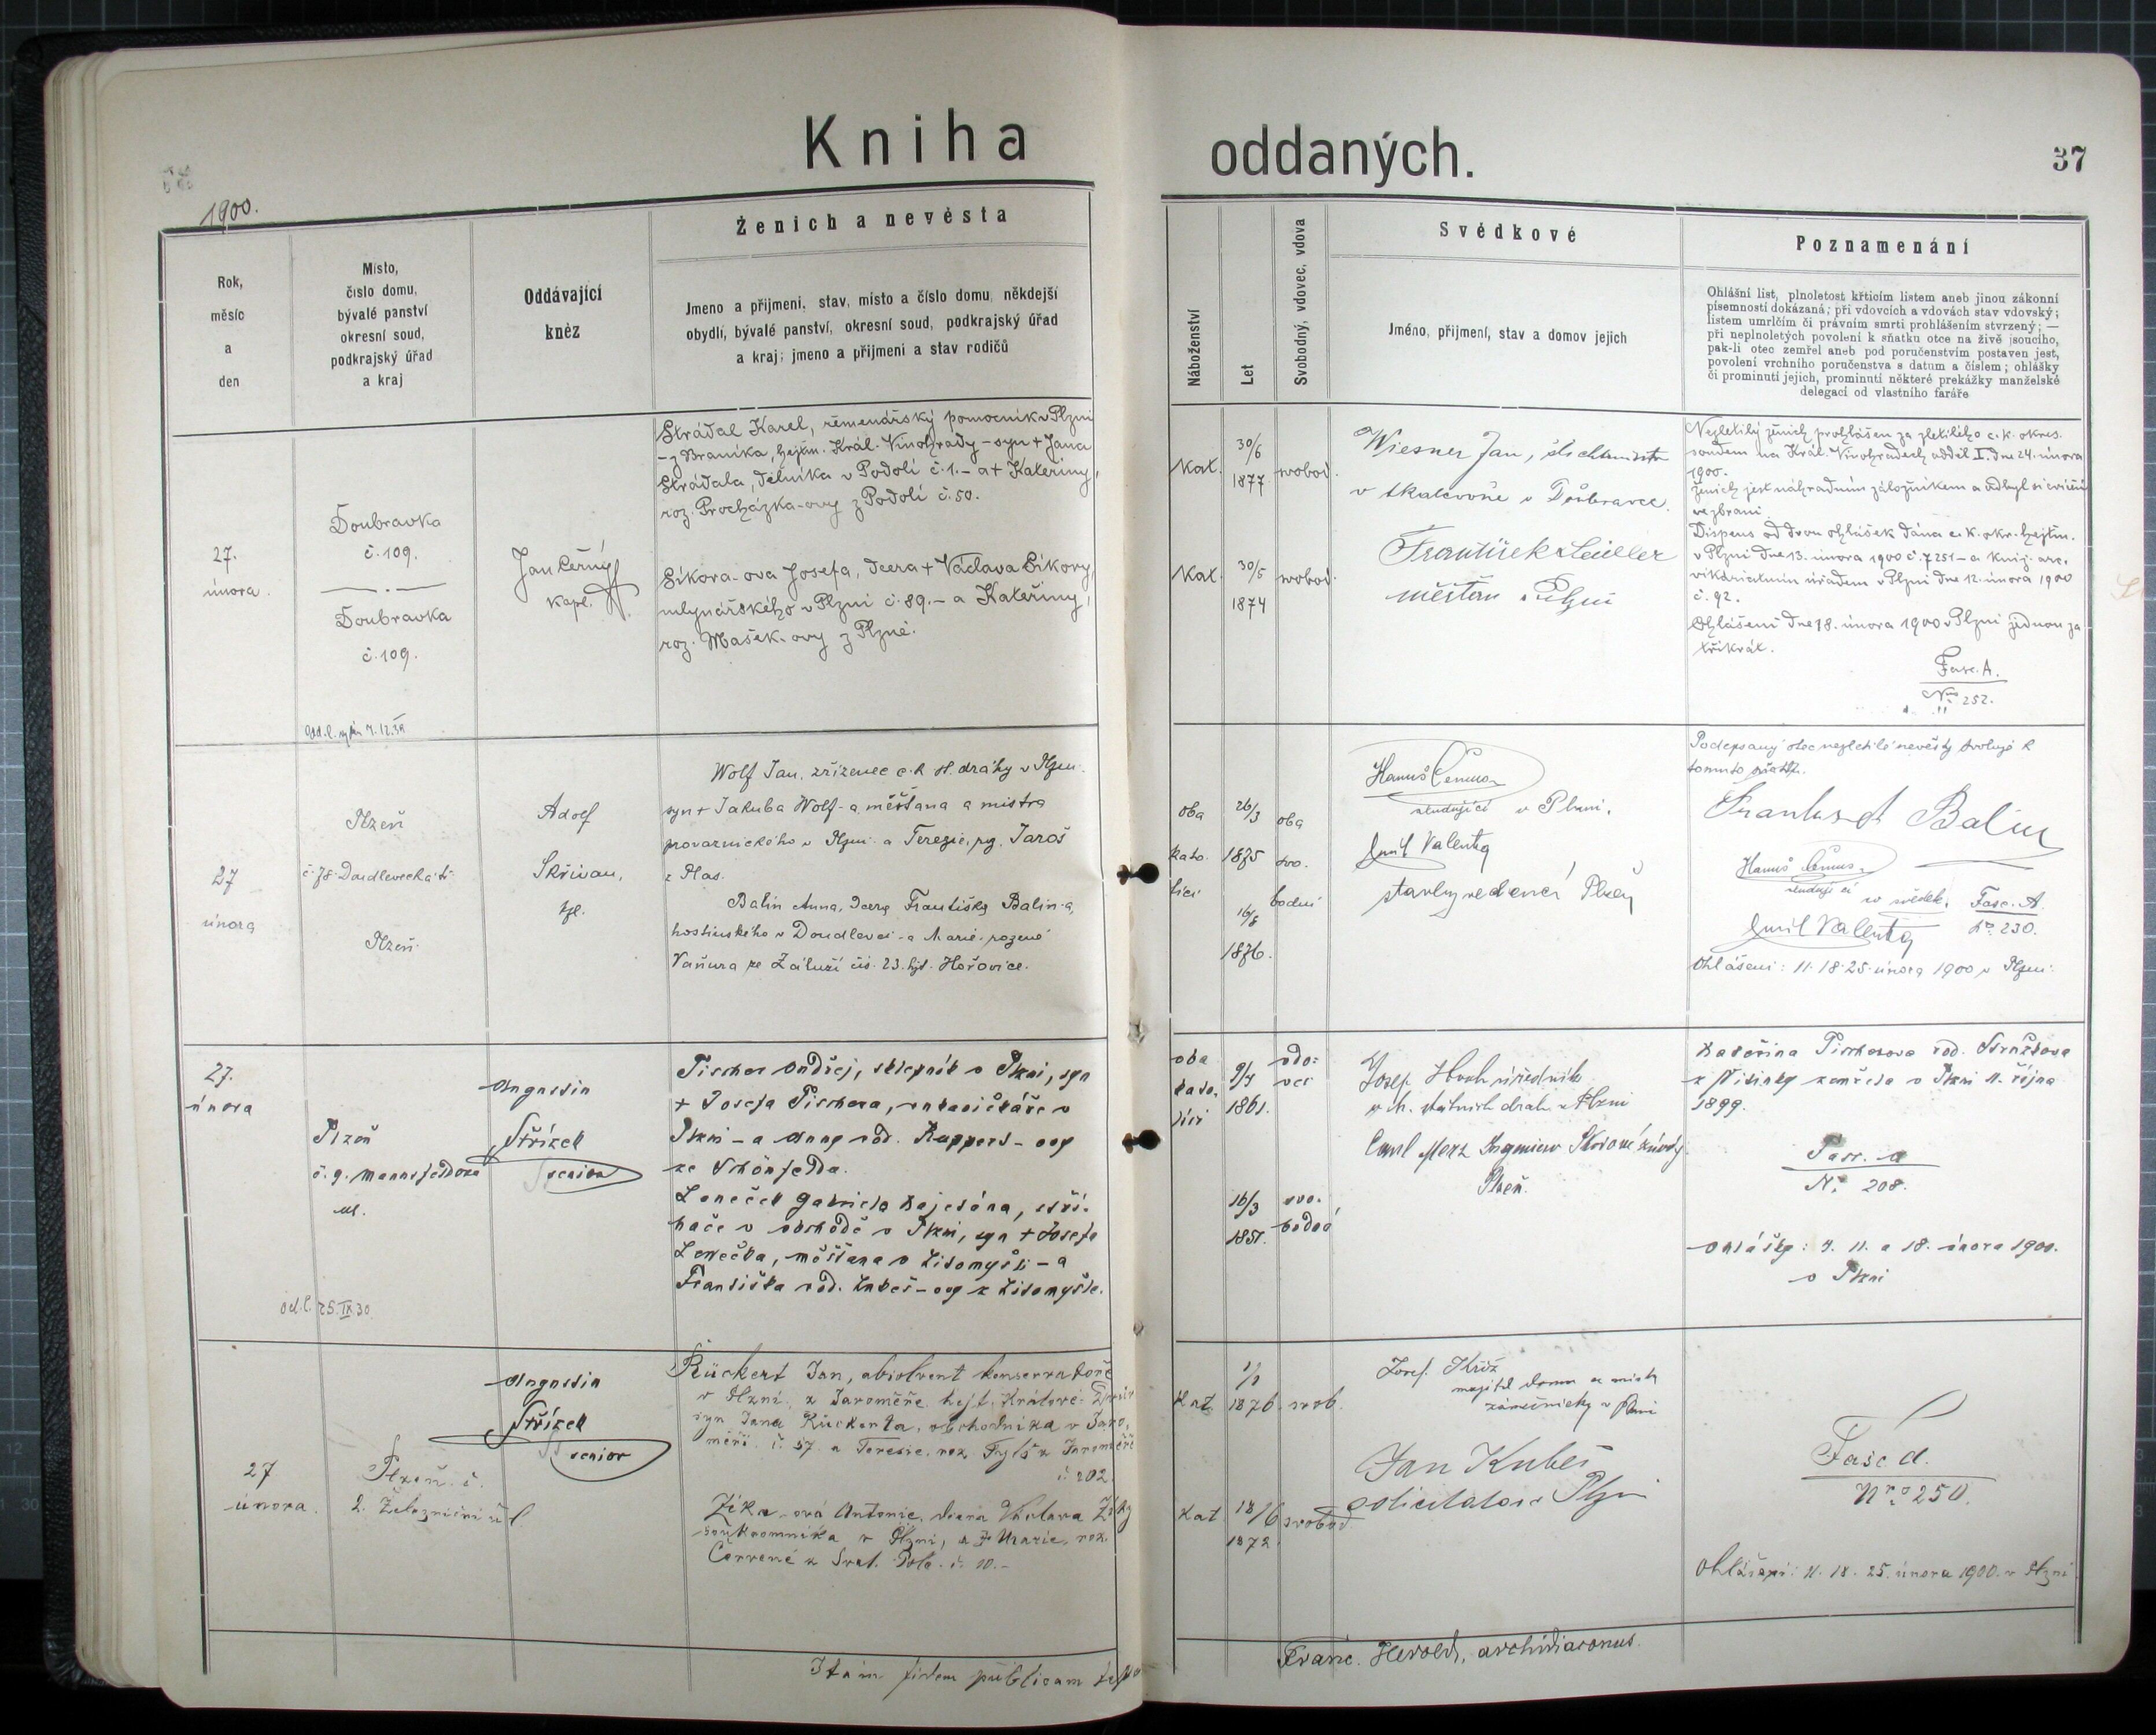 Kniha oddaných.
37
1900.
Rok,
měsíc
a
den
Místo,
číslo domu,
bývalé panství
okresní soud,
podkrajský úřad
a kraj
Oddávající
kněz
Ženich a nevěsta
Jmeno a přijmení, stav, místo a číslo domu, někdejší
obydlí, bývalé panství, okresní soud, podkrajský úřad
a kraj; jmeno a přijmeni a stav rodičů
Náboženství
Let
Svobodný, vdovec, vdova
Svědkové
Jméno, přijmení, stav a domov jejich
Poznamenání
Ohlášní list, plnoletost křticím listem aneb jinou zákonní
písemností dokázaná; při vdovcích a vdovách stav vdovský;
listem umrlčím či právním smrti prohlášením stvrzený; —
při neplnoletých povolení k sňatku otce na živě jsoucího,
pak-li otec zemřel aneb pod poručenstvím postaven jest,
povolení vrchního poručenstva s datum a číslem; ohlášky
či prominutí jejich, prominutí některé prekážky manželské
delegací od vlastního faráře
27.
února.
Doubravka
č. 109.
Doubravka
č. 109.
Jan Černý
kapl.
Strádal Karel, řemenářský pomocník v Plzni
- z Braníka, hejtm. Král. Vinohrady - syn + Jana
Strádala, dělníka v Podolí č. 1. - a + Kateřiny,
roz. Procházka-ovy z Podolí č. 50.
Síkora-ova Josefa, dcera + Václava Síkory,
mlynářského v Plzni č. 89. - a Kateřiny,
roz. Mašek-ovy z Plzně.
Kat. 30/6 1877 svobod.
Kat. 30/5 1874 svobod.
Wiesner Jan,
v tkalcovně v Doubravce.
František
měšťan v Plzni
Nezletilý ženich prohlášen za zletilého c. k. okres.
soudem na Král. Vinohradech odděl. I. dne 24. února
1900.
Ženich jest náhradním záložníkem a odbyl si cvičení
ve zbrani.
Dispens od dvou ohlášek dána c. k. okr. hejtm.
v Plzni dne 13. února 1900 č. 7251 - a kníž. arc.
vikariatním úřadem v Plzni dne 12. února 1900
č. 92.
Ohlášeni dne 18. února 1900 v Plzni jednou za
třikrát.
Fasc. A.
Nro 252.
27
února
Plzeň
č. 78. Doudlevecká tř.
Plzeň.
Adolf
Skřivan,
kpl.
Wolf Jan, zřízenec c. k. st. dráhy v Plzni.
syn + Jakuba Wolf-a, měšťana a mistra
provaznického v Plzni a Terezie, roz. Jaroš
z Plas.
Balín Anna, dcera Františka Balin-a,
hostinského v Doudlevci - a Marie, rozené
Vaňura ze Záluží čís. 23. hjt. Hořovice.
oba
kato.
líci
26/3
1875
16/8
1876.
oba
svo.
bodní
Hanuš
studující v Plzni.
Emil Valenta
stavby vedoucí Plzeň
Podepsaný otec nezletilé nevěsty svoluje k
tomuto sňatku.
Balín
Hanuš
studující
co svědek.
Emil Valenta
Fasc. A.
No. 230.
Ohlášeni: 11. 18. 25. února 1900 v Plzni.
27.
února
Plzeň
č. 9. Mannsfeldova
ul.
od. l. 25. IX 30.
Augustin
Střízek
senior
Fischer Ondřej, sklepník v Plzni, syn
+ Josefa Fischera, rukavičkáře v
Plzni - a Anny roz. Ruppert-ovy
ze Schönfelda.
Leneček Gabriela Kajetána,
v obchodě v Plzni, + Josefa
Lenečka, měšťana v Litomyšli - a
Františka roz. -ovy z Litomyšle.
oba
kato.
líci
9/4
1861.
16/3
1851.
vdo-
vec
svo-
bodná
Josef úředník
c. k. státních drah v Plzni
Carl Merz Ingenieur Škodové závody
Plzeň.
Kateřina Fischerova roz.
zemřela v Plzni 11. října
1899.
Fasc. A
No. 208.
Ohlášky: 4. 11. a 18. února 1900.
v Plzni
27
února.
Plzeň č.
2. Železniční ul.
Augustin
Střízek
senior
Rückert Jan, absolvent konservatoře
v Plzni, z Jaroměře, hejt. Králové Dvůr
syn Jana Rückerta, obchodníka v Jaro-
měři č. 57. a Terezie, roz. z Jaroměře
č. 202.
Zíka-ová Antonie, dcera Václava Zíky
soukromníka v Plzni, a Marie, roz.
Červené z Svat. Pole č. 10.-
Kat. 1876 svob.
Kat. 18/6 1872. svobod
Josef Kříž
majitel domu a mistr
zámečnický v Plzni
Jan Kubeš
solicitator v Plzni
Fasc. A.
Nro. 250.
Ohlášeni: 11. 18. 25. února 1900. v Plzni
Ita in fidem publicam
Franc. Herold, archidiaconus.